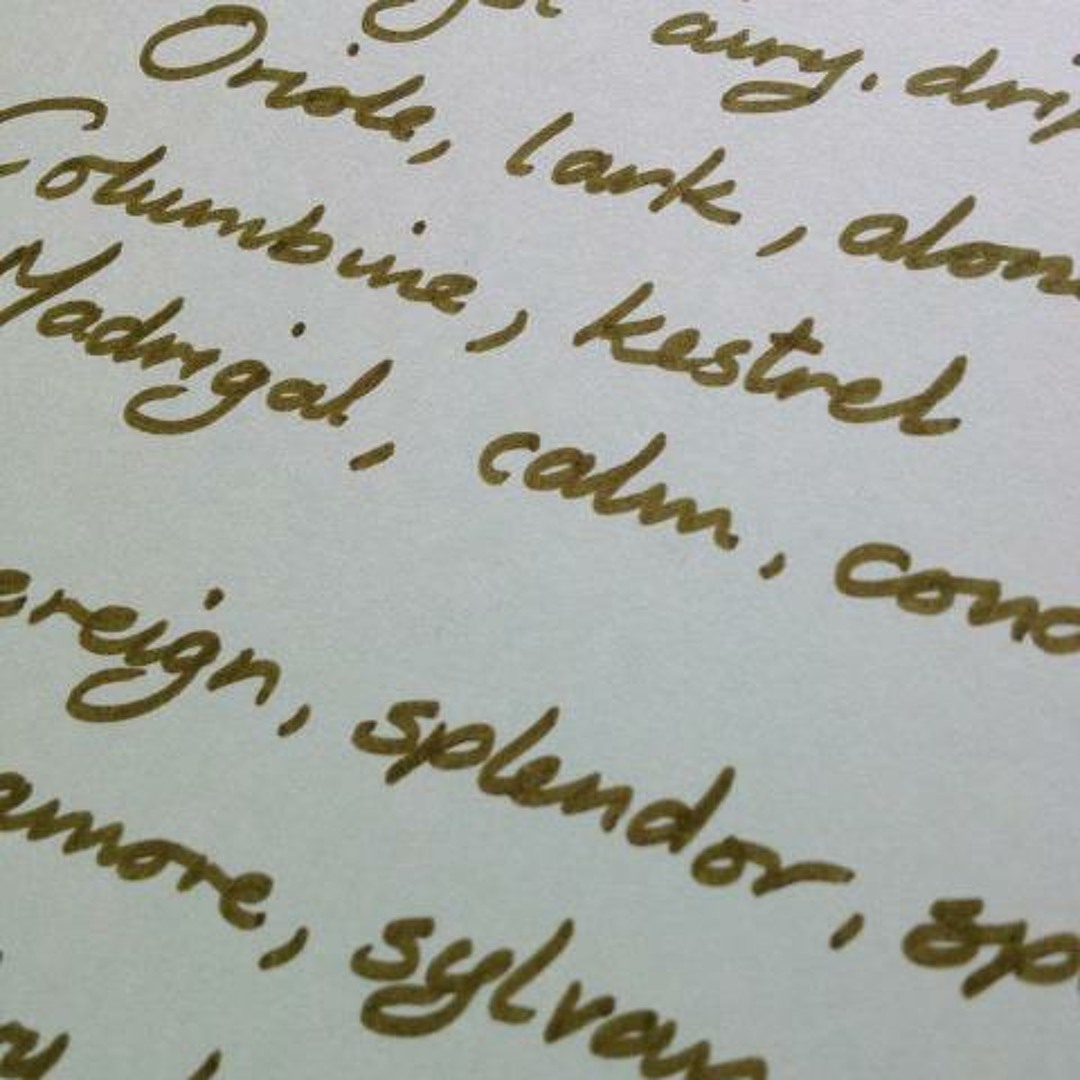 airy. drip
Oriole, lark, alone
Columbine, kestrel
Madrigal, calm, cond
ereign, splendor, sp
amore, sylvan